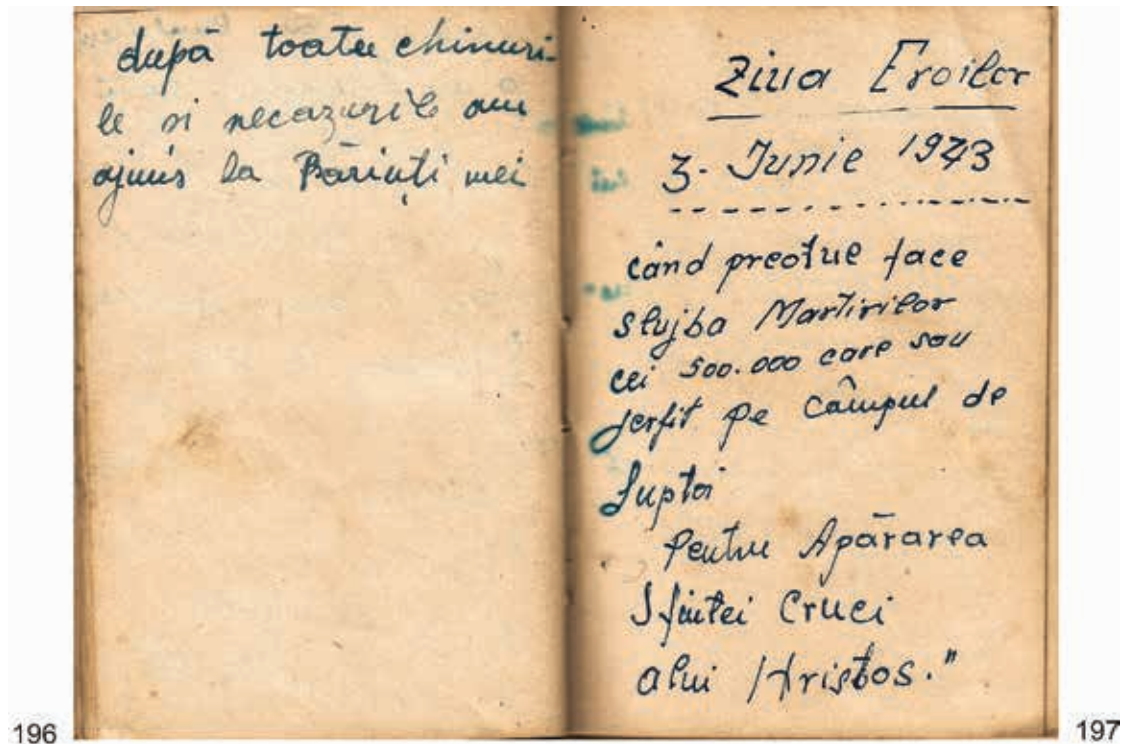 după toate chinuri-
le si necazurile am
ajuns la Părinți mei
196
Ziua Eroilor
3. Iunie 1973
când preotul face
slujba Martirilor
cei 500.000 care sau
jerfit pe câmpul de
luptă
Pentru Apărarea
Sfintei Cruci
alui Hristos."
197